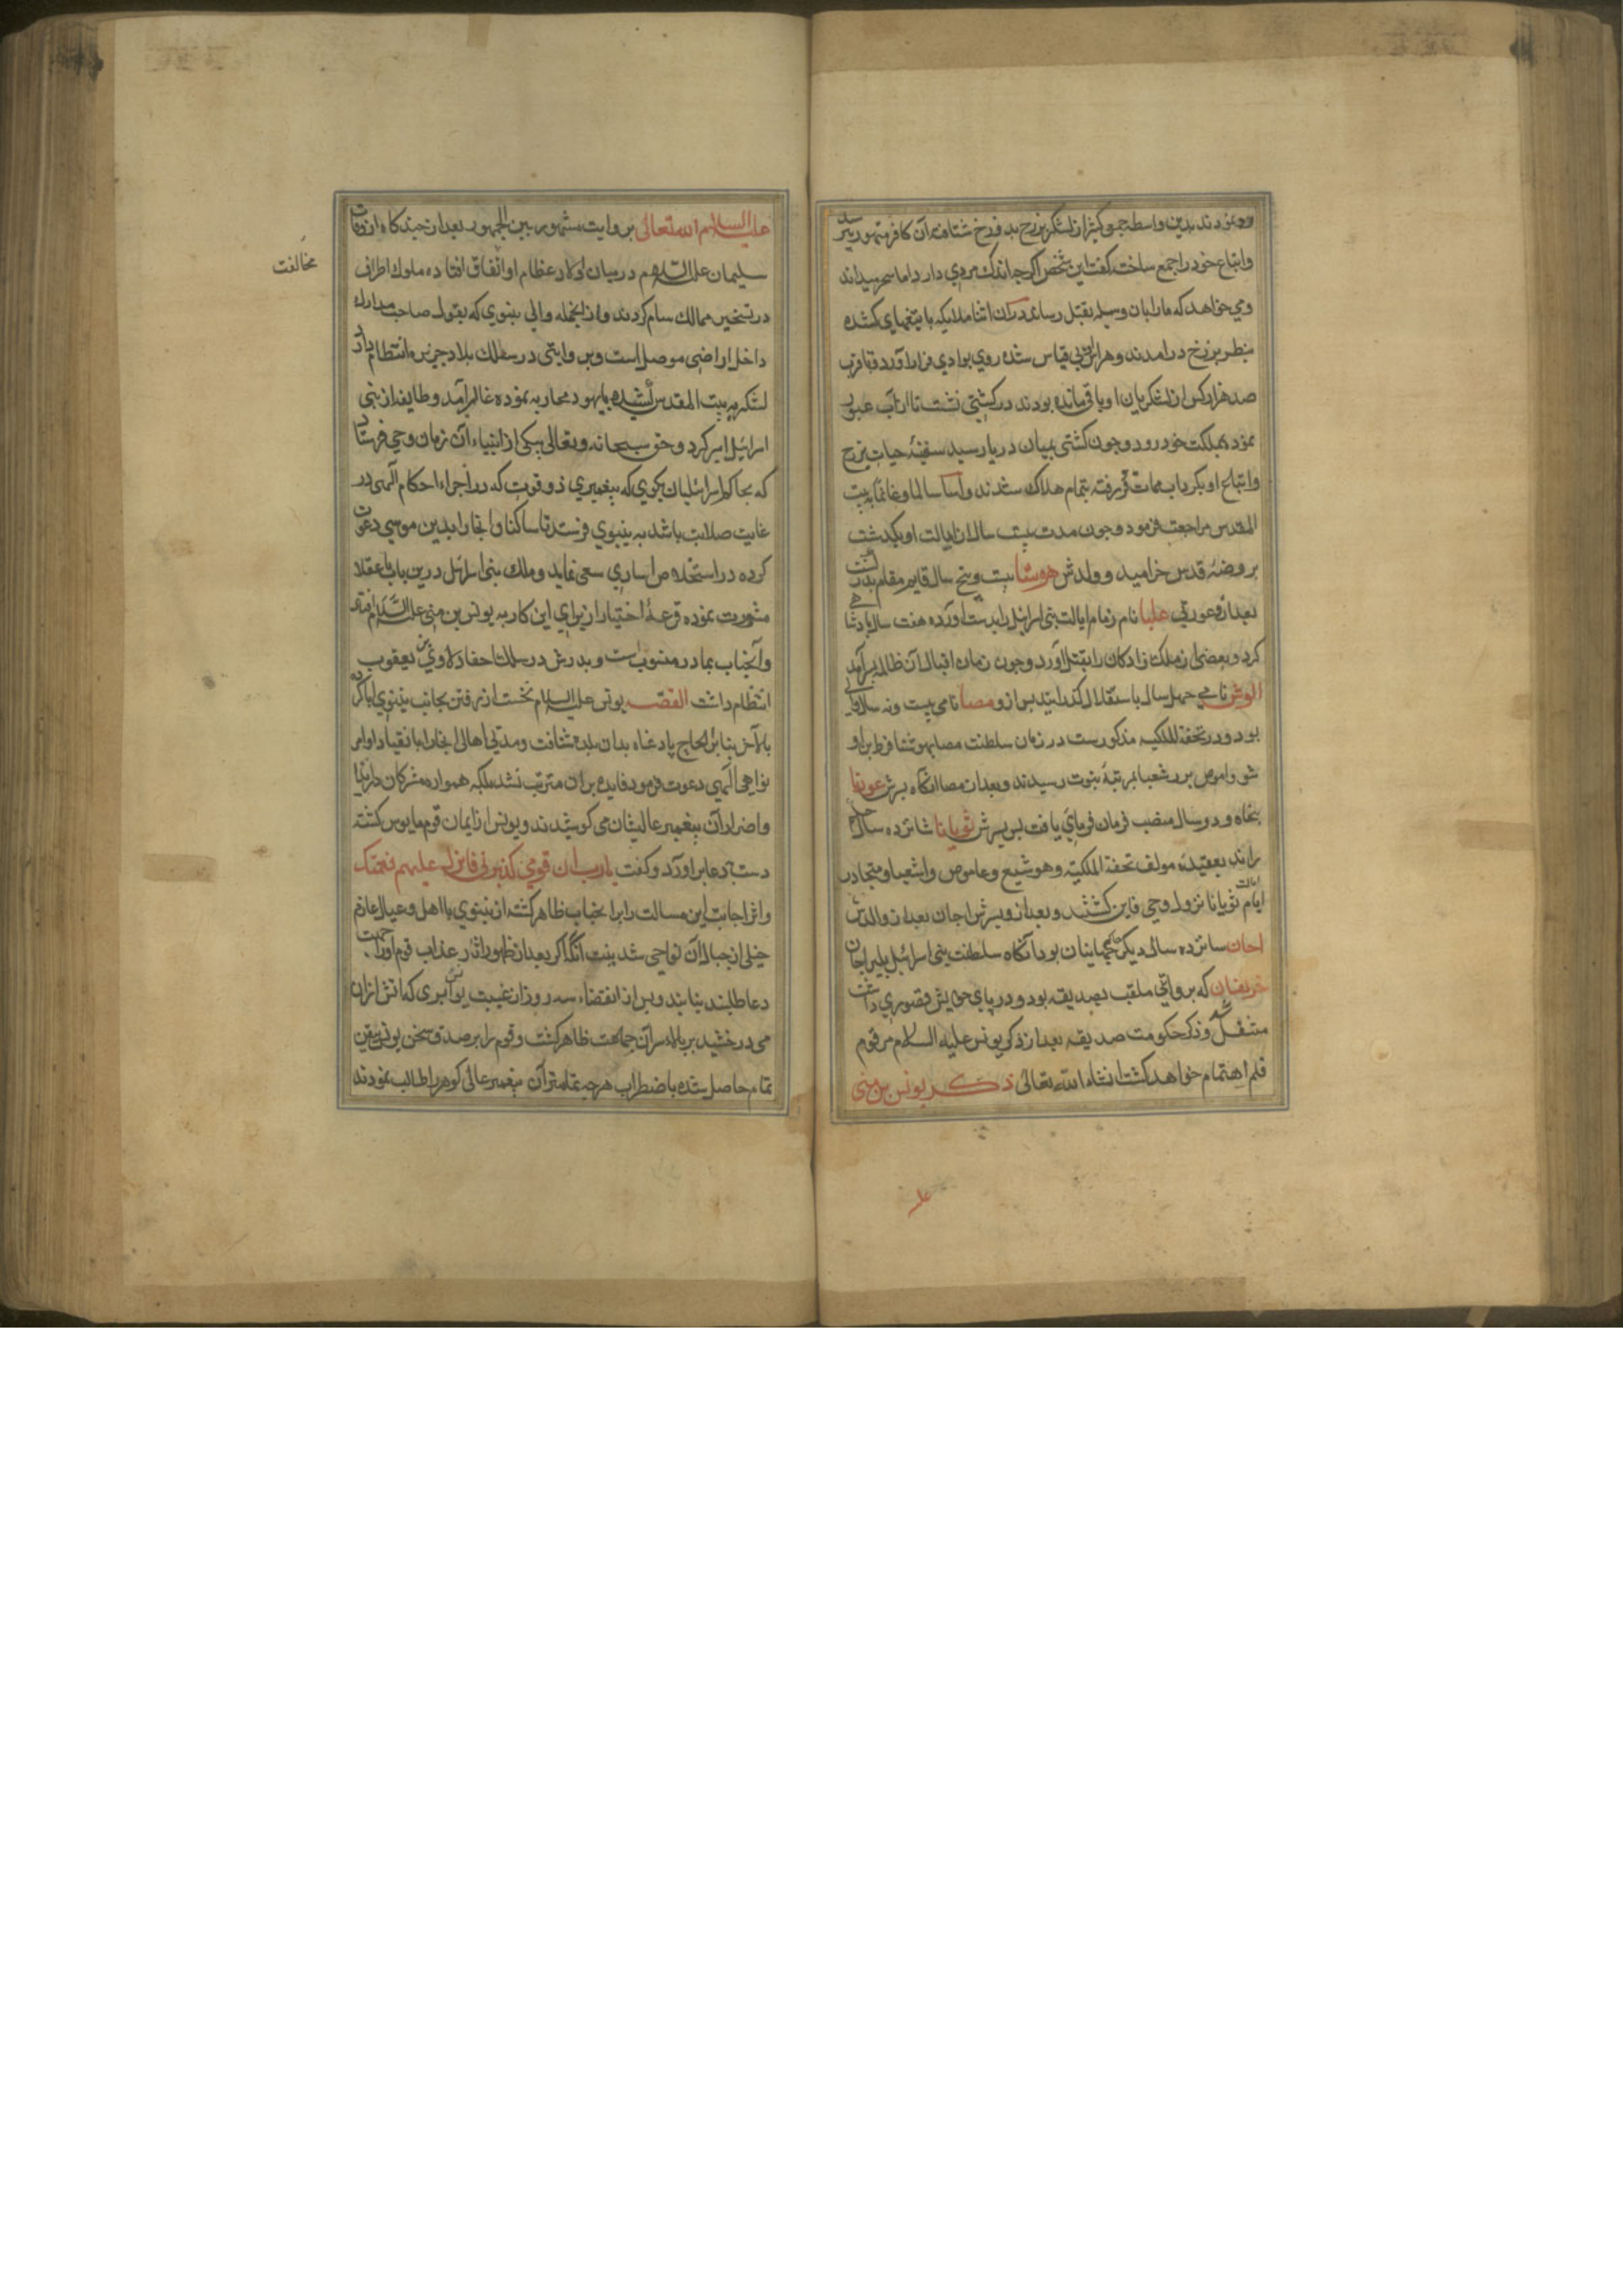 ووبمودند بدین واسطه جمع کثیر از لشکر بزرخ بدوزخ شتافته آن کافر متهور بترسید
واتباع خود را جمع ساخت کفت این شخص اکرچه اندک مردی دارد اما سحر میداند
ومی خواهد که ما را بان وسیله بقتل رساند در آن اثنا ملایکه با تیغهای کشیده
بنظر بزرخ درامدند وهراس بی قیاس شده روی بوادی فرار آورد وقافرب
صد هزار کس از لشکریان او باقی مانده بودند در کشتی نشست تا از آب عبور
نموده بمملکت خود رود وچون کشتی بمیان دریا رسید سفینهٔ حیات بزرخ
واتباع او بکرداب ممات فرو رفته بتمام هلاک شدند واسا سالما وغانما به بیت
المقدس مراجعت فرمود وچون مدت بیست سال از ایالت او بکذشت
بروضهٔ قدس خرامید وولدش هوشا بیست وپنج سال قایم مقام پدر کشت
بعد ازو عورتی علیا نام زمام ایالت بنی اسرائیل را بدست آورده هفت سال پادشاهی
کرد وبعضی از ملک زادکان را بقتل آورد وچون زمان اقبال آن ظالمه بسرآمد
الوش نامی چهل سال باستقلال کذرانید پس ازو مصا نامی بیست ونه سال والی
بود ودر تحفة الملکیه مذکورست در زمان سلطنت مصا یهوشنا فرط براو
شو واموص پدر شعیا بمرتبهٔ نبوت رسیدند وبعد از مصا انکاه پسرش عوزیا
پنجاه ودو سال منصب فرمان فرمای یافت پس پسرش ثویانا شانزده سال حکم
راند بعقیدهٔ مولف تحفة الملکیته وهوشیع وعاموص واشعیا ومتجادر
ایام ایالت ثویانا نزول وحی فایز کشتند وبعد ازو پسرش اجان بعد از والدش
احان سانزده سالی دیکر حاکم جهانیان بود آنکاه سلطنت بنی اسرائیل بپسر اجان
خریفان که بروایتی ملقب بصدیقه بود ودر پای خویش قصوری داشت
منتقل کشت وذکر حکومت صدیقه بعد از ذکر یونس علیه السلام مرقوم
قلم اهتمام خواهد کشت انشاء الله تعالی ذکر یونس بن متی
علیه السلام الله تعالی بروایت مشهور بین الجمهور بعد از چند کاه از وفات
سلیمان علیه السلام در میان اولاد عظام او اتفاق افتاده ملوک اطراف
مخالفت
در تسخیر ممالک شام کردند واز انجمله والی نینوی که بقول صاحب مدارک
داخل اراضی موصل است وبروایتی در سلک بلاد جزیره انتظام دارد
لشکر به بیت المقدس کشیده با یهود محاربه نموده غالب آمد وطایفه از بنی
اسرائیل اسیر کرد وحق سبحانه وتعالی بیکی از انبیاء آن زمان وحی فرستاد
که بحاکم اسرائیلیان بکوی که پیغمبری ذو قوت که در اجراء احکام الهی در
غایت صلابت باشد به نینوی فرستد تا ساکنان انجا را بدین موسی دعوت
کرده در استخلاص اساری سعی نماید وملک بنی اسرائیل درین باب با عقلا
مشورت نموده قرعهٔ اختیار از برای این کار به یونس بن متی علیه السلام افتاد
وآنجناب بمادر منسوب است وپدرش در سلک احفاد لاوی بن یعقوب
انتظام داشت القصه یونس علیه السلام نخست از رفتن بجانب نینوی ابا کرده
بالآخر بنا بر الحاح پادشاه بدان بلده شتافت ومدتی اهالی انجا را بانقیاد اوامر
نواهی الهی دعوت فرمود فایده بران مترتب نشد بلکه همواره مشرکان در ایذا
واضرار آن پیغمبر عالیشان می کوشیدند ویونس از ایمان قوم مایوس کشته
دست بدعا براورد وکفت یارب ان قومی کذبونی فانزل علیهم نقمتک
واثر اجابت این مسالت را بر انجناب ظاهر کشته از نینوی با اهل وعیال عازم
جبلی از جبال آن نواحی شد بنیت آنک اکر بعد از ظهور اثار عذاب قوم اورا جهت
دعا طلبند نیابند وپس از انقضاء سه روز از غیبت یونس ابری که آتش ازان
می درخشید بر بالاء سر آن جماعت ظاهر کشت وقوم را بر صدق سخن یونس یقین
تمام حاصل شده باضطراب هرچه تمامتر آن پیغمبر عالی کوهر را طلب نمودند